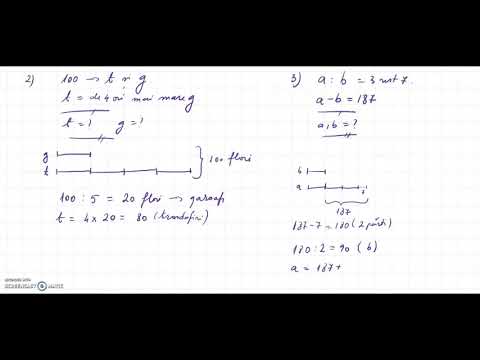 2) 100 → t și g
t = de 4 ori mai mare g
t = ? g = ?
g
t
100 flori
100 : 5 = 20 flori → garoafe
t = 4 x 20 = 80 (trandafiri)
3) a : b = 3 rest 7.
a - b = 187
a, b = ?
b
a
7
187
187 - 7 = 180 (2 părți)
180 : 2 = 90 (b)
a = 187 +
SCREENCAST MATIC